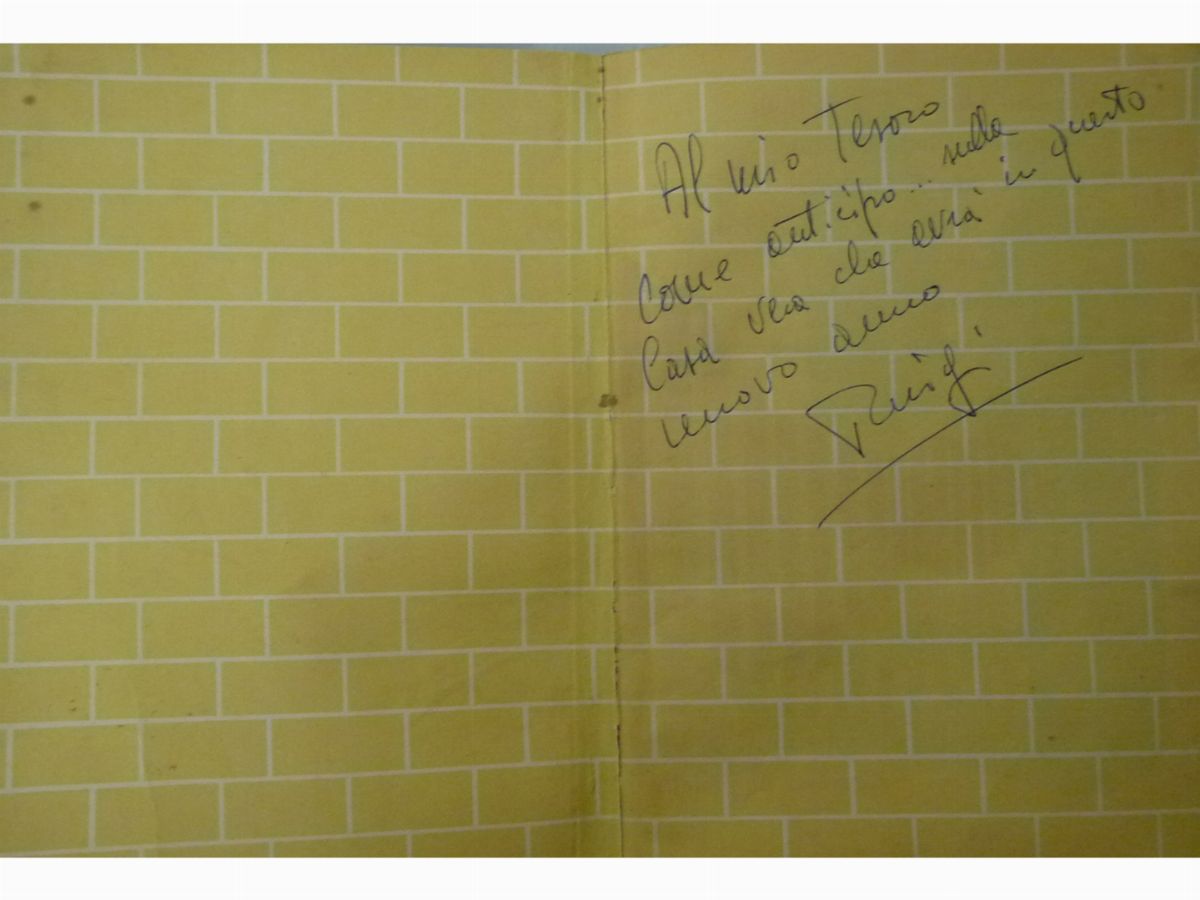 Al mio Tesoro
come anticipo... sulla
Casa vera che avrà in questo
nuovo anno